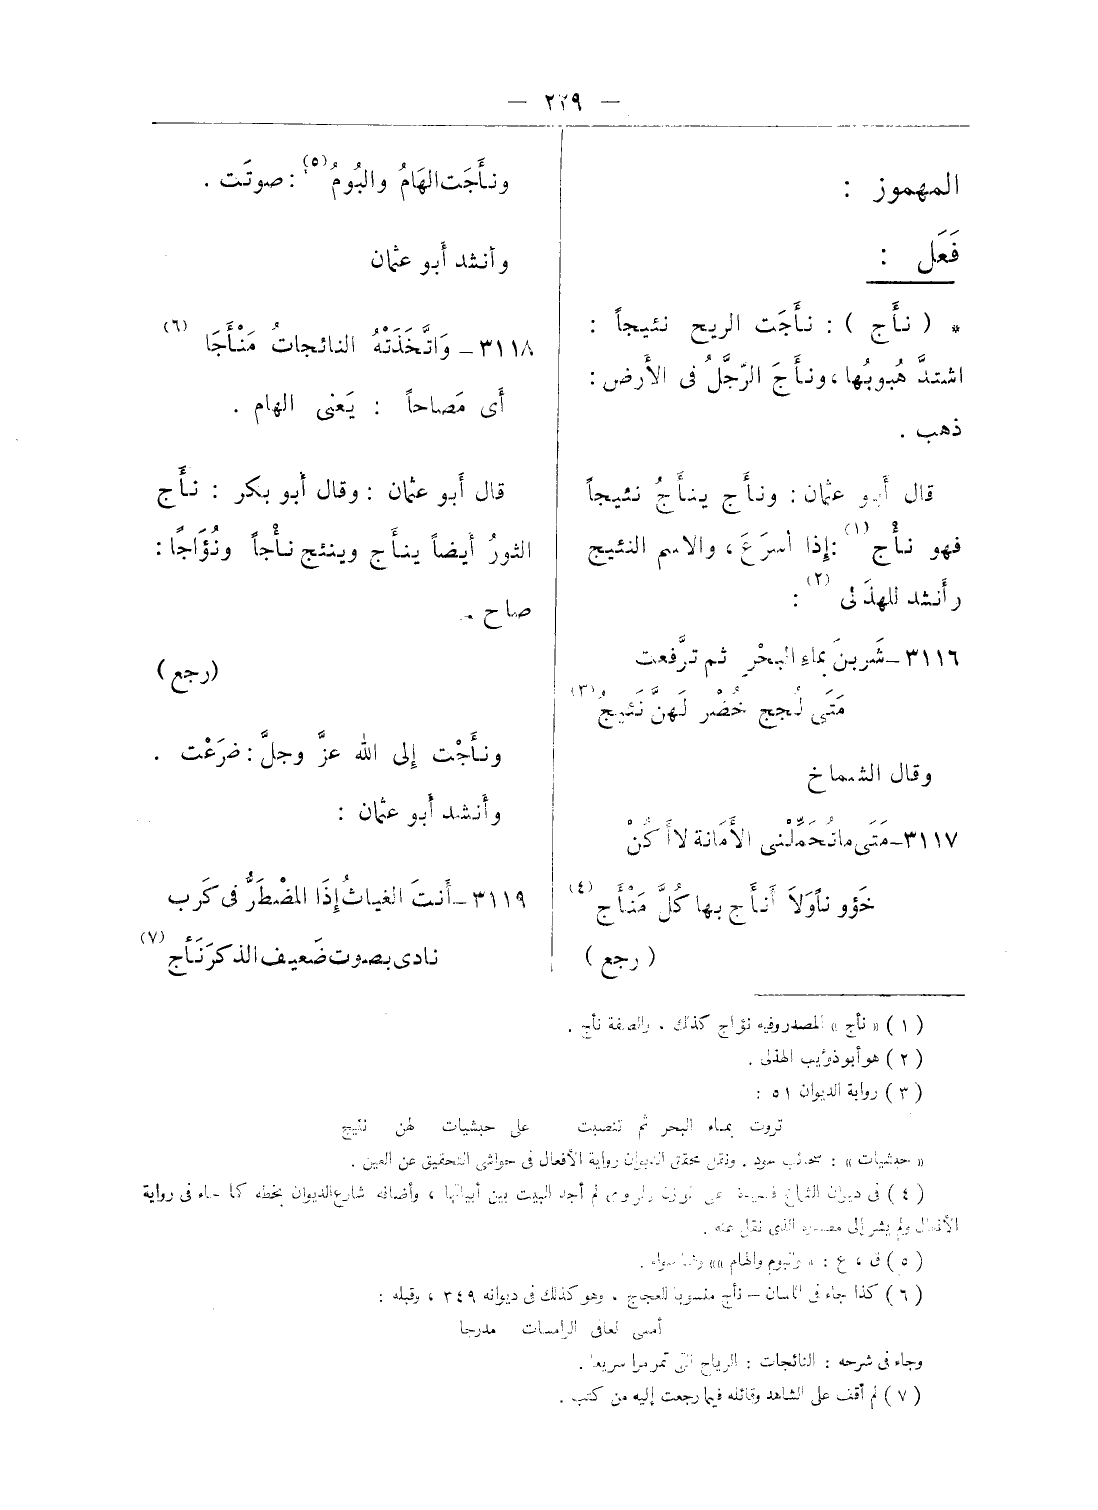 — ٢٢٩ —
المهموز :
فَعَل :
* ( نأَج ) : نأَجَت الريح نئيجاً :
اشتدَّ هُبوبُها ، ونأَجَ الرّجَّلُ فى الأَرض :
ذهب .
قال أَبو عثمان : ونأَج ينأَجُ نئيجاً
فهو نأْج (١) : إِذا أسرَعَ ، والاسم النئيج
وأَنشد للهذَلى (٢) :
٣١١٦ ــ شَربنَ بماءِ البحْرِ ثم ترَّفعت
مَتَى لُججٍ خُضْرٍ لَهنَّ نَئيجُ (٣)
وقال الشماخ
٣١١٧ ــ مَتَى ما تُحَمِّلْنى الأَمَانة لا أَكُنْ
خَؤوناً وَلاَ أَنأَج بها كُلَّ مَنْأَج (٤)
( رجع )
ونأَجَت الهَامُ والبُومُ (٥) : صوتَت .
وأنشد أَبو عثمان
٣١١٨ ــ وَاتَّخَذَتْهُ النائجاتُ مَنْأَجَا (٦)
أَى مَصاحاً : يَعنى الهام .
قال أَبو عثمان : وقال أَبو بكر : نأَج
الثورُ أَيضاً ينأَج وينئج نأْجاً ونُؤَاجًا :
صاح .
(رجع)
ونأَجْت إلى الله عزَّ وجلَّ : ضرَعْت .
وأَنشد أَبو عثمان :
٣١١٩ ــ أَنتَ الغياثُ إِذَا المضْطَرُّ فى كَرب
نادى بصوت ضَعيف الذكر نَأَج (٧)
( ١ ) « نأج » المصدر وفيه نؤاج كذلك ، والصفة نأج .
( ٢ ) هو أبو ذؤيب الهذلى .
( ٣ ) رواية الديوان ٥١ :
تروت بماء البحر ثم تنصبت على حبشيات لهن نئيج
« حبشيات » : سحائب سود . ونقل محقق الديوان رواية الأفعال فى حواشى التحقيق عن العين .
( ٤ ) فى ديوان الشماخ قصيدة على الوزن والروى لم أجد البيت بين أبياتها ، وأضافه شارع الديوان بخطه كما جاء فى رواية
الأفعال ولم يشر إلى مصدره الذى نقل عنه .
( ٥ ) ق ، ع : « والبوم والهام » وهما سواء .
( ٦ ) كذا جاء فى اللسان – نأج منسوبا للعجاج ، وهو كذلك فى ديوانه ٣٤٩ ، وقبله :
أمسى لعافى الرامسات مدرجا
وجاء فى شرحه : النائجات : الرياح التى تمر مرا سريعا .
( ٧ ) لم أقف على الشاهد وقائله فيما رجعت إليه من كتب .